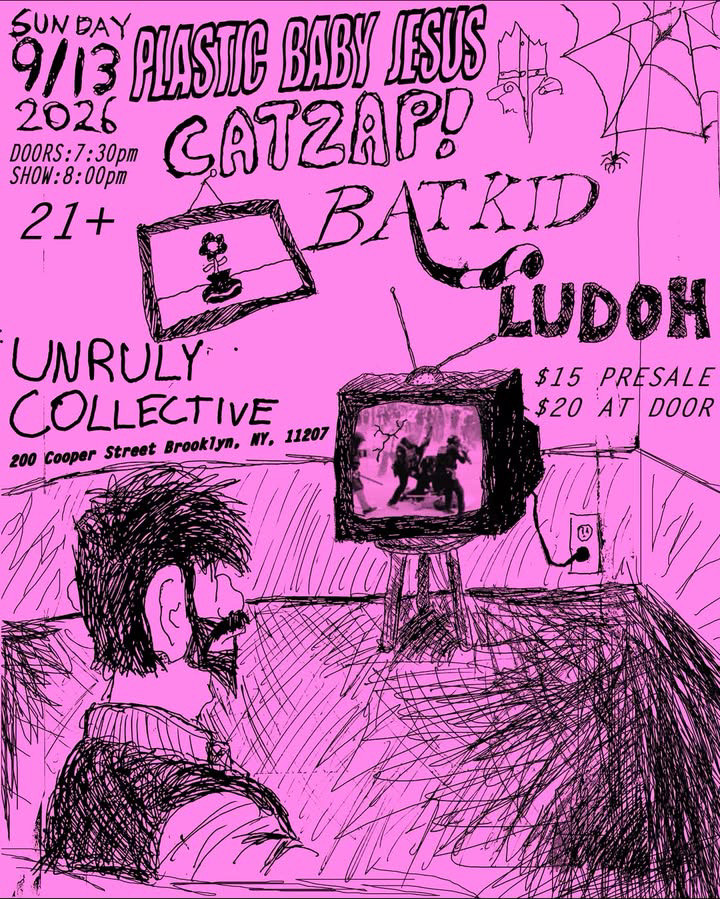 SUNDAY
9/13
2026
DOORS:7:30pm
SHOW:8:00pm
21+
PLASTIC BABY JESUS
CATZAP!
BATKID
LUDOH
UNRULY
COLLECTIVE
200 Cooper Street Brooklyn, NY, 11207
$15 PRESALE
$20 AT DOOR